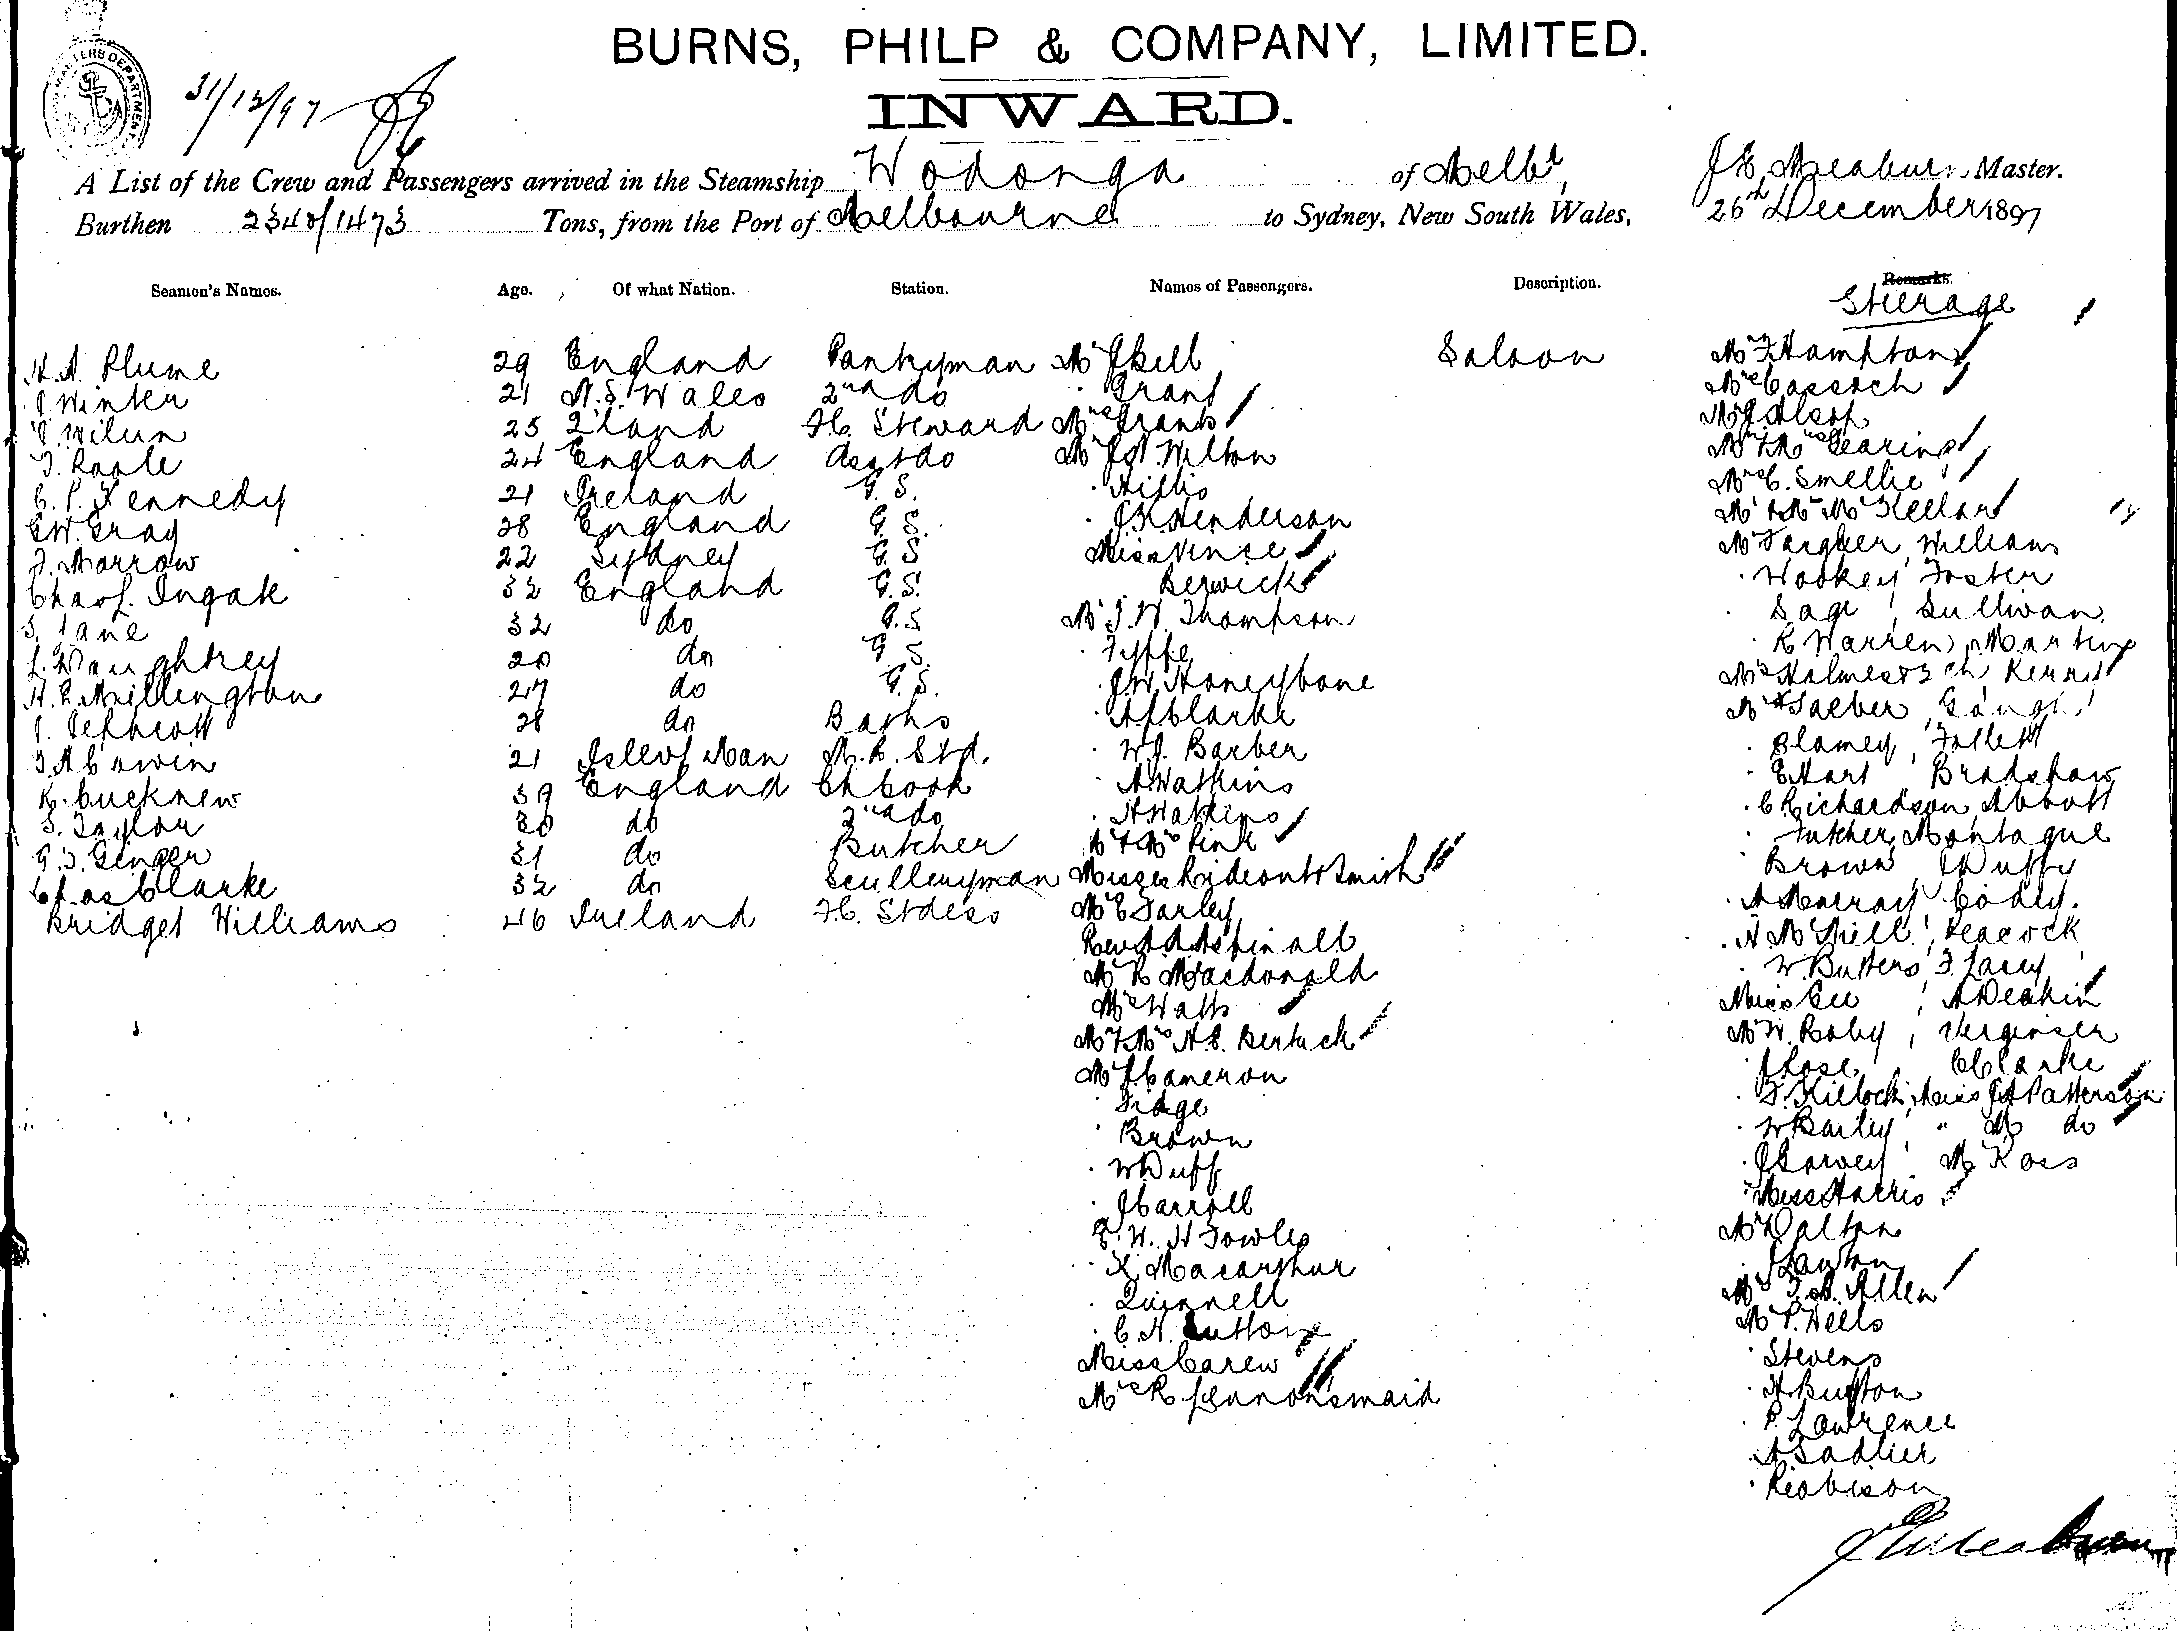 BURNS, PHILP & COMPANY, LIMITED.
INWARD.
31/12/97
A List of the Crew and Passengers arrived in the Steamship Wodonga of Melbr, J H Meaburn Master.
Burthen 2340/1473 Tons, from the Port of Melbourne to Sydney, New South Wales, 26th December 1897
Seamen's Names. Age. Of what Nation. Station. Names of Passengers. Description. Remarks.
Steerage
H. A. Plume 29 England Pantryman
J Winter 21 N. S. Wales 2nd do
25 Q'land F.C. Steward
T. Poole 24 England Asst do
C. P. Kennedy 21 Ireland G. S.
G.W. Gray 28 England G. S.
J. Morrow 22 Sydney G. S
Chas. J. Ingate 32 England G. S.
S. Lane 32 do G. S
L. Waughtrey 20 do G S.
H. E. Millington 27 do G. S.
J. Jephcott 28 do Baths
21 Isle of Man M. R. Std.
R. Cucknew 39 England Ch Cook
S. Taylor 30 do 2nd do
G. T. Ginger 31 do Butcher
Chas Clarke 32 do Sculleryman
Bridget Williams 46 Ireland F.C. Stdess
Mr J Bell Saloon
" Grant
Mrs Grant
Mr J. A. Wilton
" J. K. Henderson
Miss Vince
Berwick
Mr J. W. Thompson
" Fyffe
" J W. Honeybone
" A J Clarke
" W. J. Barber
" A Watkins
" H Watkins
Mr & Mrs Pink
Misses Rideout & Smith
Mr E Farley
Rev A A Aspinall
Mr R Macdonald
Mrs Watts
Mr & Mrs H. C.
Mr J Cameron
" Fidge
" Brown
" W Duff
" J Carroll
E. W. H Fowles
" K. Macarthur
" Quinnell
" C. H. Sutton
Miss Carew
Mrs R Lennon's maid
Mr F Hampton
Mrs Cassoch
Mr J Alsop
Mr & Mrs Gearing
Mrs C. Smellie
Mr & Mrs McKellar
Mr Fargher, Williams
" Hookey, Foster
" Sage, Sullivan
" R Warren, Martin
Mrs Holmes & 2 ch, Kerr
" Blamey, Follett
" E Hart, Bradshaw
" C Richardson, Abbott
" Futcher, Montague
" Brown, Duffy
" A Murray, Codey.
" H. McNeill, Peacock
" W. Butters, F. Lacey
Miss Gee, A Deakin
Mr W. Roby,
" J Rose, C Clarke
" F. Killock, Miss J A Patterson
" W Bailey, " M do
" J Garvey, Mr Ross
" Miss Harris
Mr Dalton
" J Lawton
Mrs F. A. Allen
Mr P. Wells
" Stevens
" H Button
" P. Lawrence
" A Sadlier
" Robison